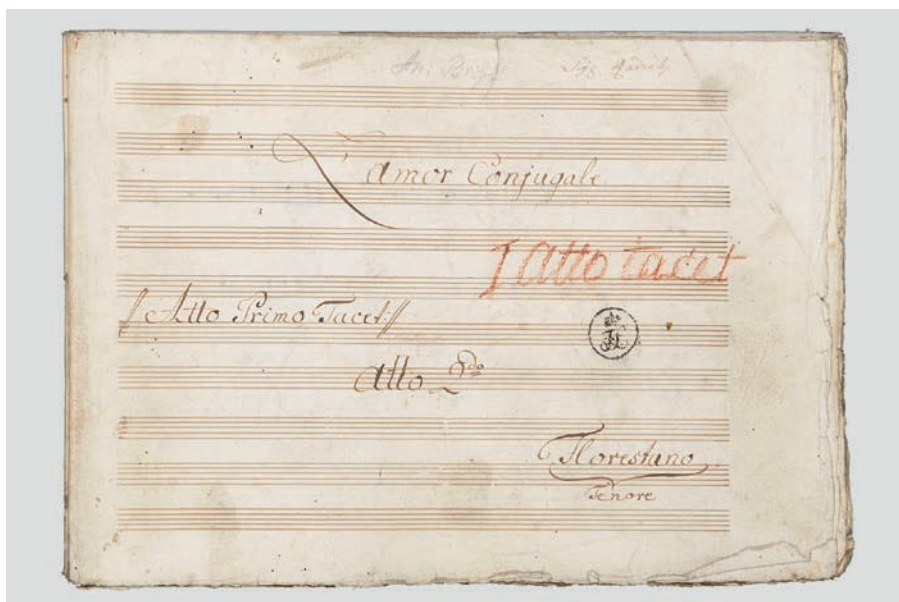 L'amor Conjugale
I Atto tacet
// Atto Primo Tacet://
Atto 2do
Florestano
Tenore